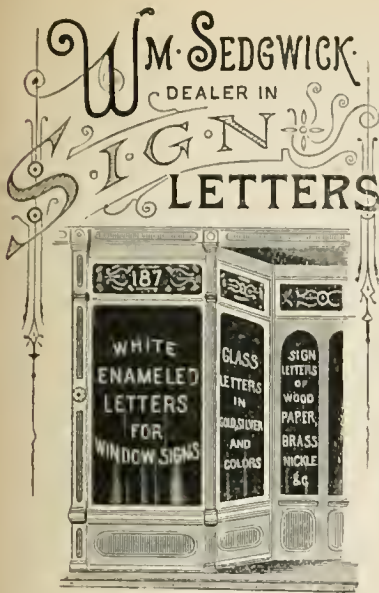 WM. SEDGWICK.
DEALER IN
S.I.G.N
LETTERS
187
WHITE
ENAMELED
LETTERS
FOR
WINDOW SIGNS
GLASS
LETTERS
IN
GOLD, SILVER
AND
COLORS
SIGN
LETTERS
OF
WOOD
PAPER,
BRASS
NICKLE
&c